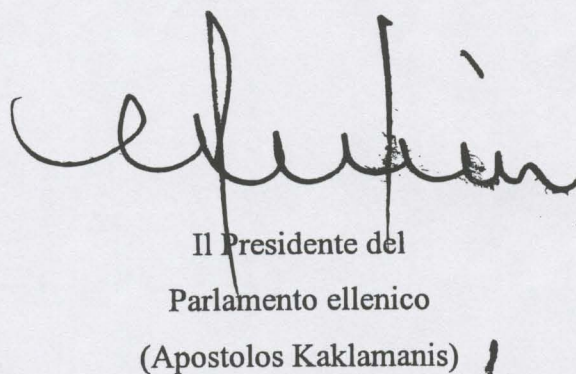 Il Presidente del
Parlamento ellenico
(Apostolos Kaklamanis)